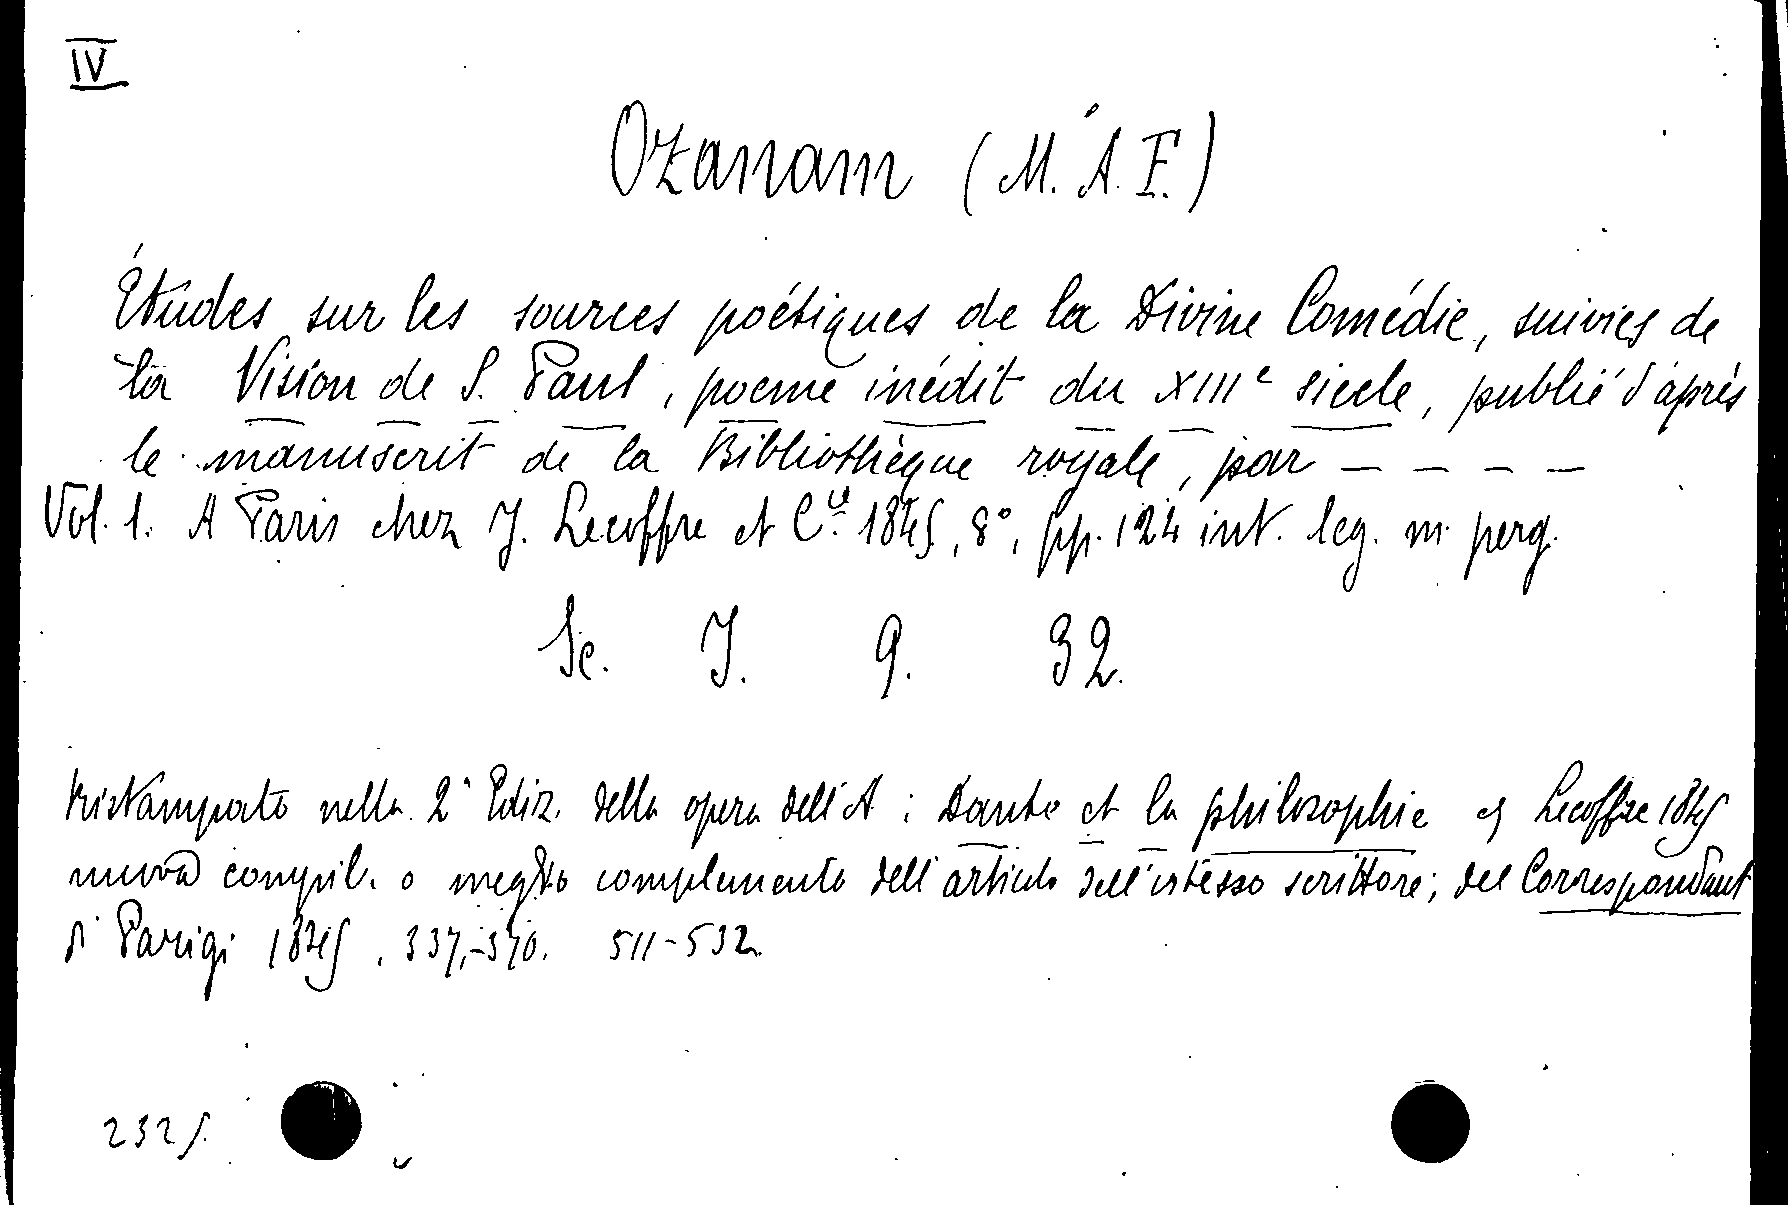 IV
Ozanam (M. A. F.)
Études sur les sources poétiques de la Divine Comédie, suivies de
la Vision de S. Paul, poeme inédit du XIIIe siecle, publié d'après
le manuscrit de la Bibliothèque royale, par — — — —
Vol. 1. A Paris chez J. Lecoffre et Cie 1845, 8°, pp. 124 int. leg. m. perg.
Sc. J. 9. 32.
Ristampato nella 2a Ediz. della opera dell'A: Dante et la philosophie Lecoffre 1845
nuova compil. o meglio complemento dell'articolo dell'istesso scrittore; del Correspondant
di Parigi 1845. 337-370. 511-532
2325.